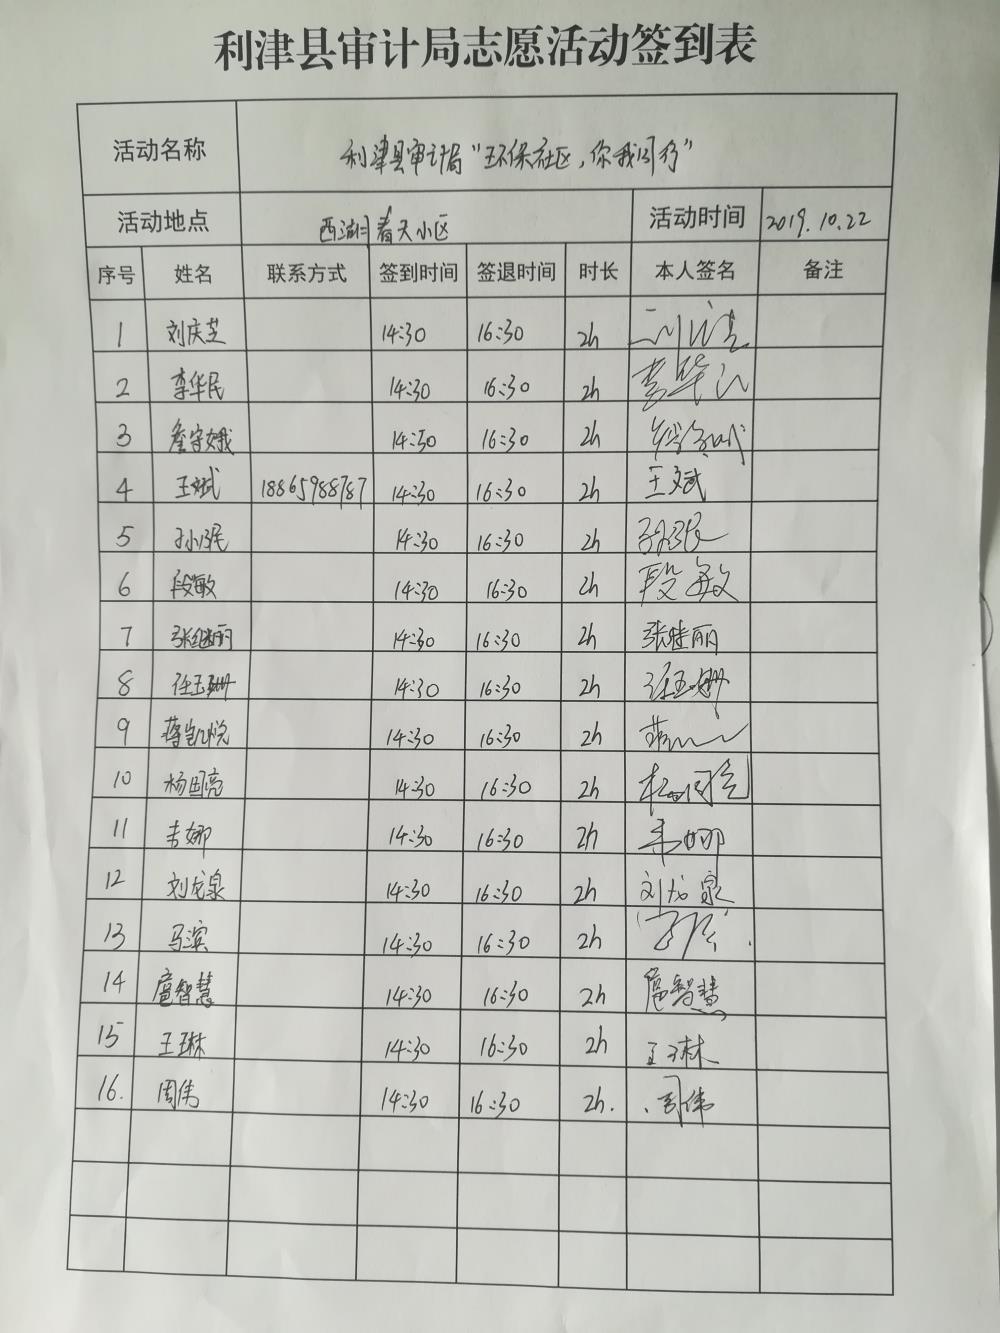 利津县审计局志愿活动签到表
活动名称 利津县审计局“环保社区,你我同行”
活动地点 西湖春天小区 活动时间 2019.10.22
序号 姓名 联系方式 签到时间 签退时间 时长 本人签名 备注
1 刘庆芝 14:30 16:30 2h
2 李华民 14:30 16:30 2h 李华民
3 14:30 16:30 2h
4 王斌 18865988787 14:30 16:30 2h 王斌
5 孙小民 14:30 16:30 2h
6 段敏 14:30 16:30 2h 段敏
7 张继丽 14:30 16:30 2h 张继丽
8 任玉珊 14:30 16:30 2h 任玉珊
9 蒋凯悦 14:30 16:30 2h 蒋
10 杨国亮 14:30 16:30 2h 杨国亮
11 娜 14:30 16:30 2h 娜
12 刘龙泉 14:30 16:30 2h 刘龙泉
13 马滨 14:30 16:30 2h
14 扈智慧 14:30 16:30 2h 扈智慧
15 王琳 14:30 16:30 2h 王琳
16. 周伟 14:30 16:30 2h. 周伟